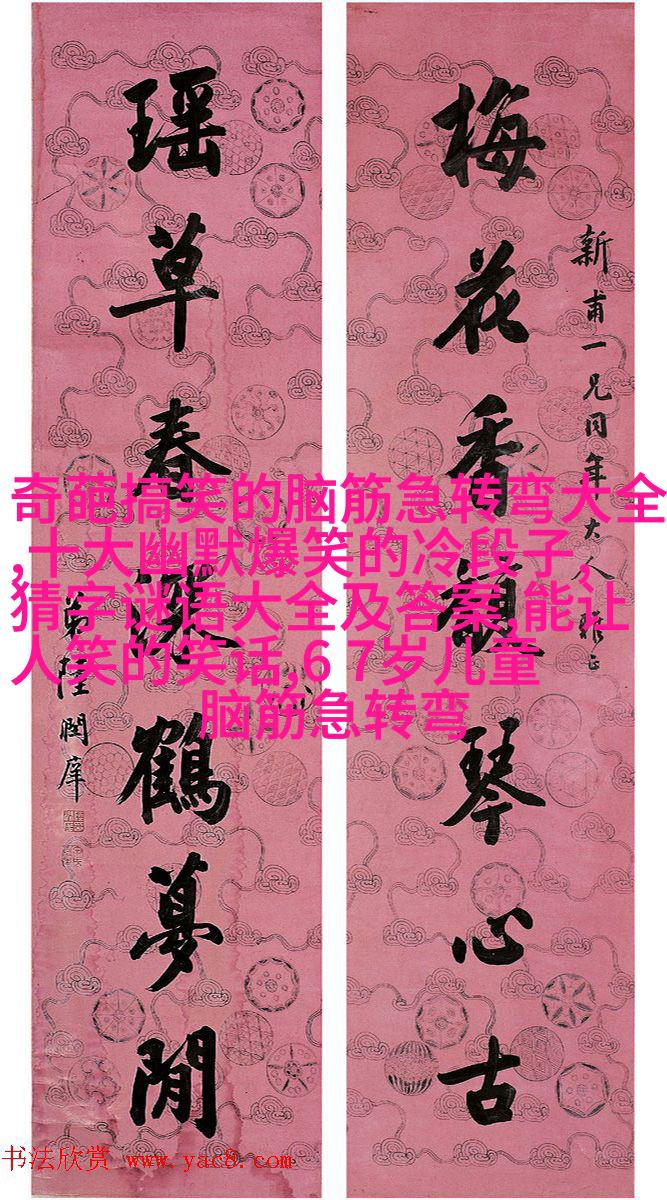 梅花香琴心古
新甫一兄同年大人雅正
瑶草春鶴夢閒
弟陸潤庠
奇葩搞笑的脑筋急转弯大全
,十大幽默爆笑的冷段子,
猜字谜语大全及答案,能让
人笑的笑话,6 7岁儿童
脑筋急转弯
书法欣赏 www.yac8.com